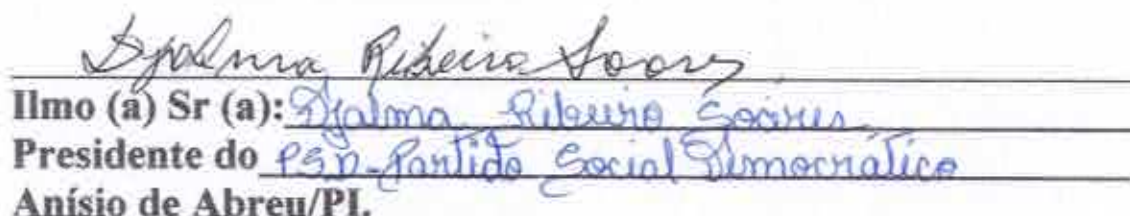 Djalma Ribeiro Soares
Ilmo (a) Sr (a): Djalma Ribeiro Soares
Presidente do PSD-Partido Social Democratico
Anísio de Abreu/PI.